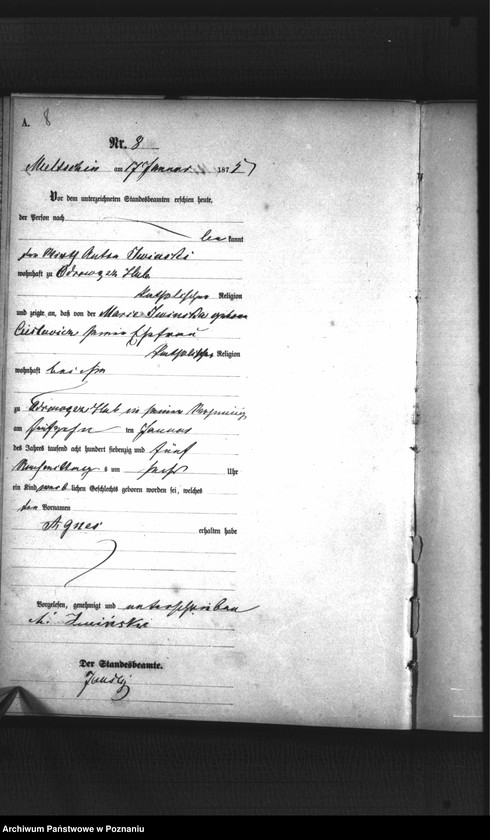 A. 8
Nr. 8
am 17 Januar 1875
Vor dem unterzeichneten Standesbeamten erschien heute,
der Person nach
be kannt
der Wirth Anton
wohnhaft zu Hld.
katholischer Religion
und zeigte an, daß von der Marie geborene
seiner Ehefrau
katholischer Religion
wohnhaft bei ihm
zu Hld. in seiner Wohnung
am fünfzehn ten Januar
des Jahres tausend acht hundert siebenzig und fünf
Nachmittags um sechs Uhr
ein Kind weib lichen Geschlechts geboren worden sei, welches
den Vornamen
Agnes
erhalten habe
Vorgelesen, genehmigt und unterschrieben
A.
Der Standesbeamte.
Archiwum Państwowe w Poznaniu